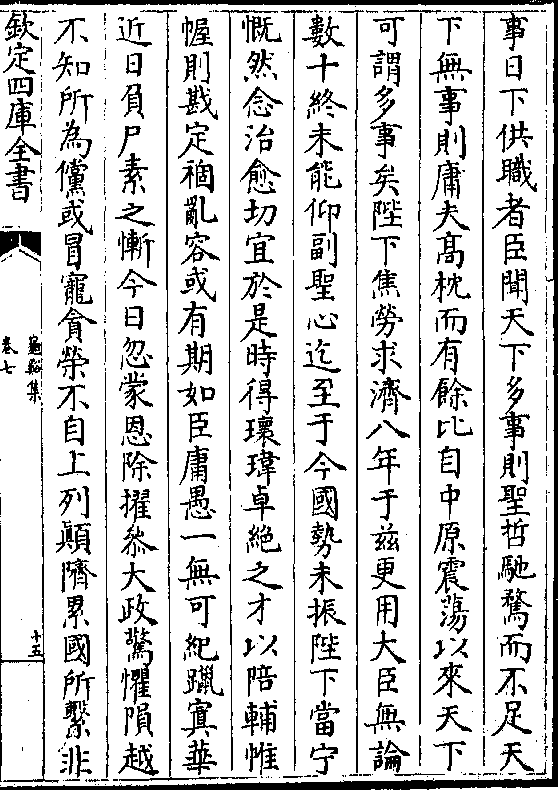 事日下供職者臣聞天下多事則聖哲馳騖而不足天
下無事則庸夫髙枕而有餘比自中原震蕩以來天下
可謂多事矣陛下焦勞求濟八年于兹更用大臣無論
數十終未能仰副聖心迄至于今國勢未振陛下當宁
慨然念治愈切宜於是時得瓌瑋卓絶之才以陪輔帷
幄則戡定禍亂容或有期如臣庸愚一無可紀躐寘華
近日負尸素之慚今日忽蒙恩除擢叅大政驚懼隕越
不知所為儻或冒寵貪榮不自上列顛隮累國所繫非
欽定四庫全書
龜谿集
卷七
十五